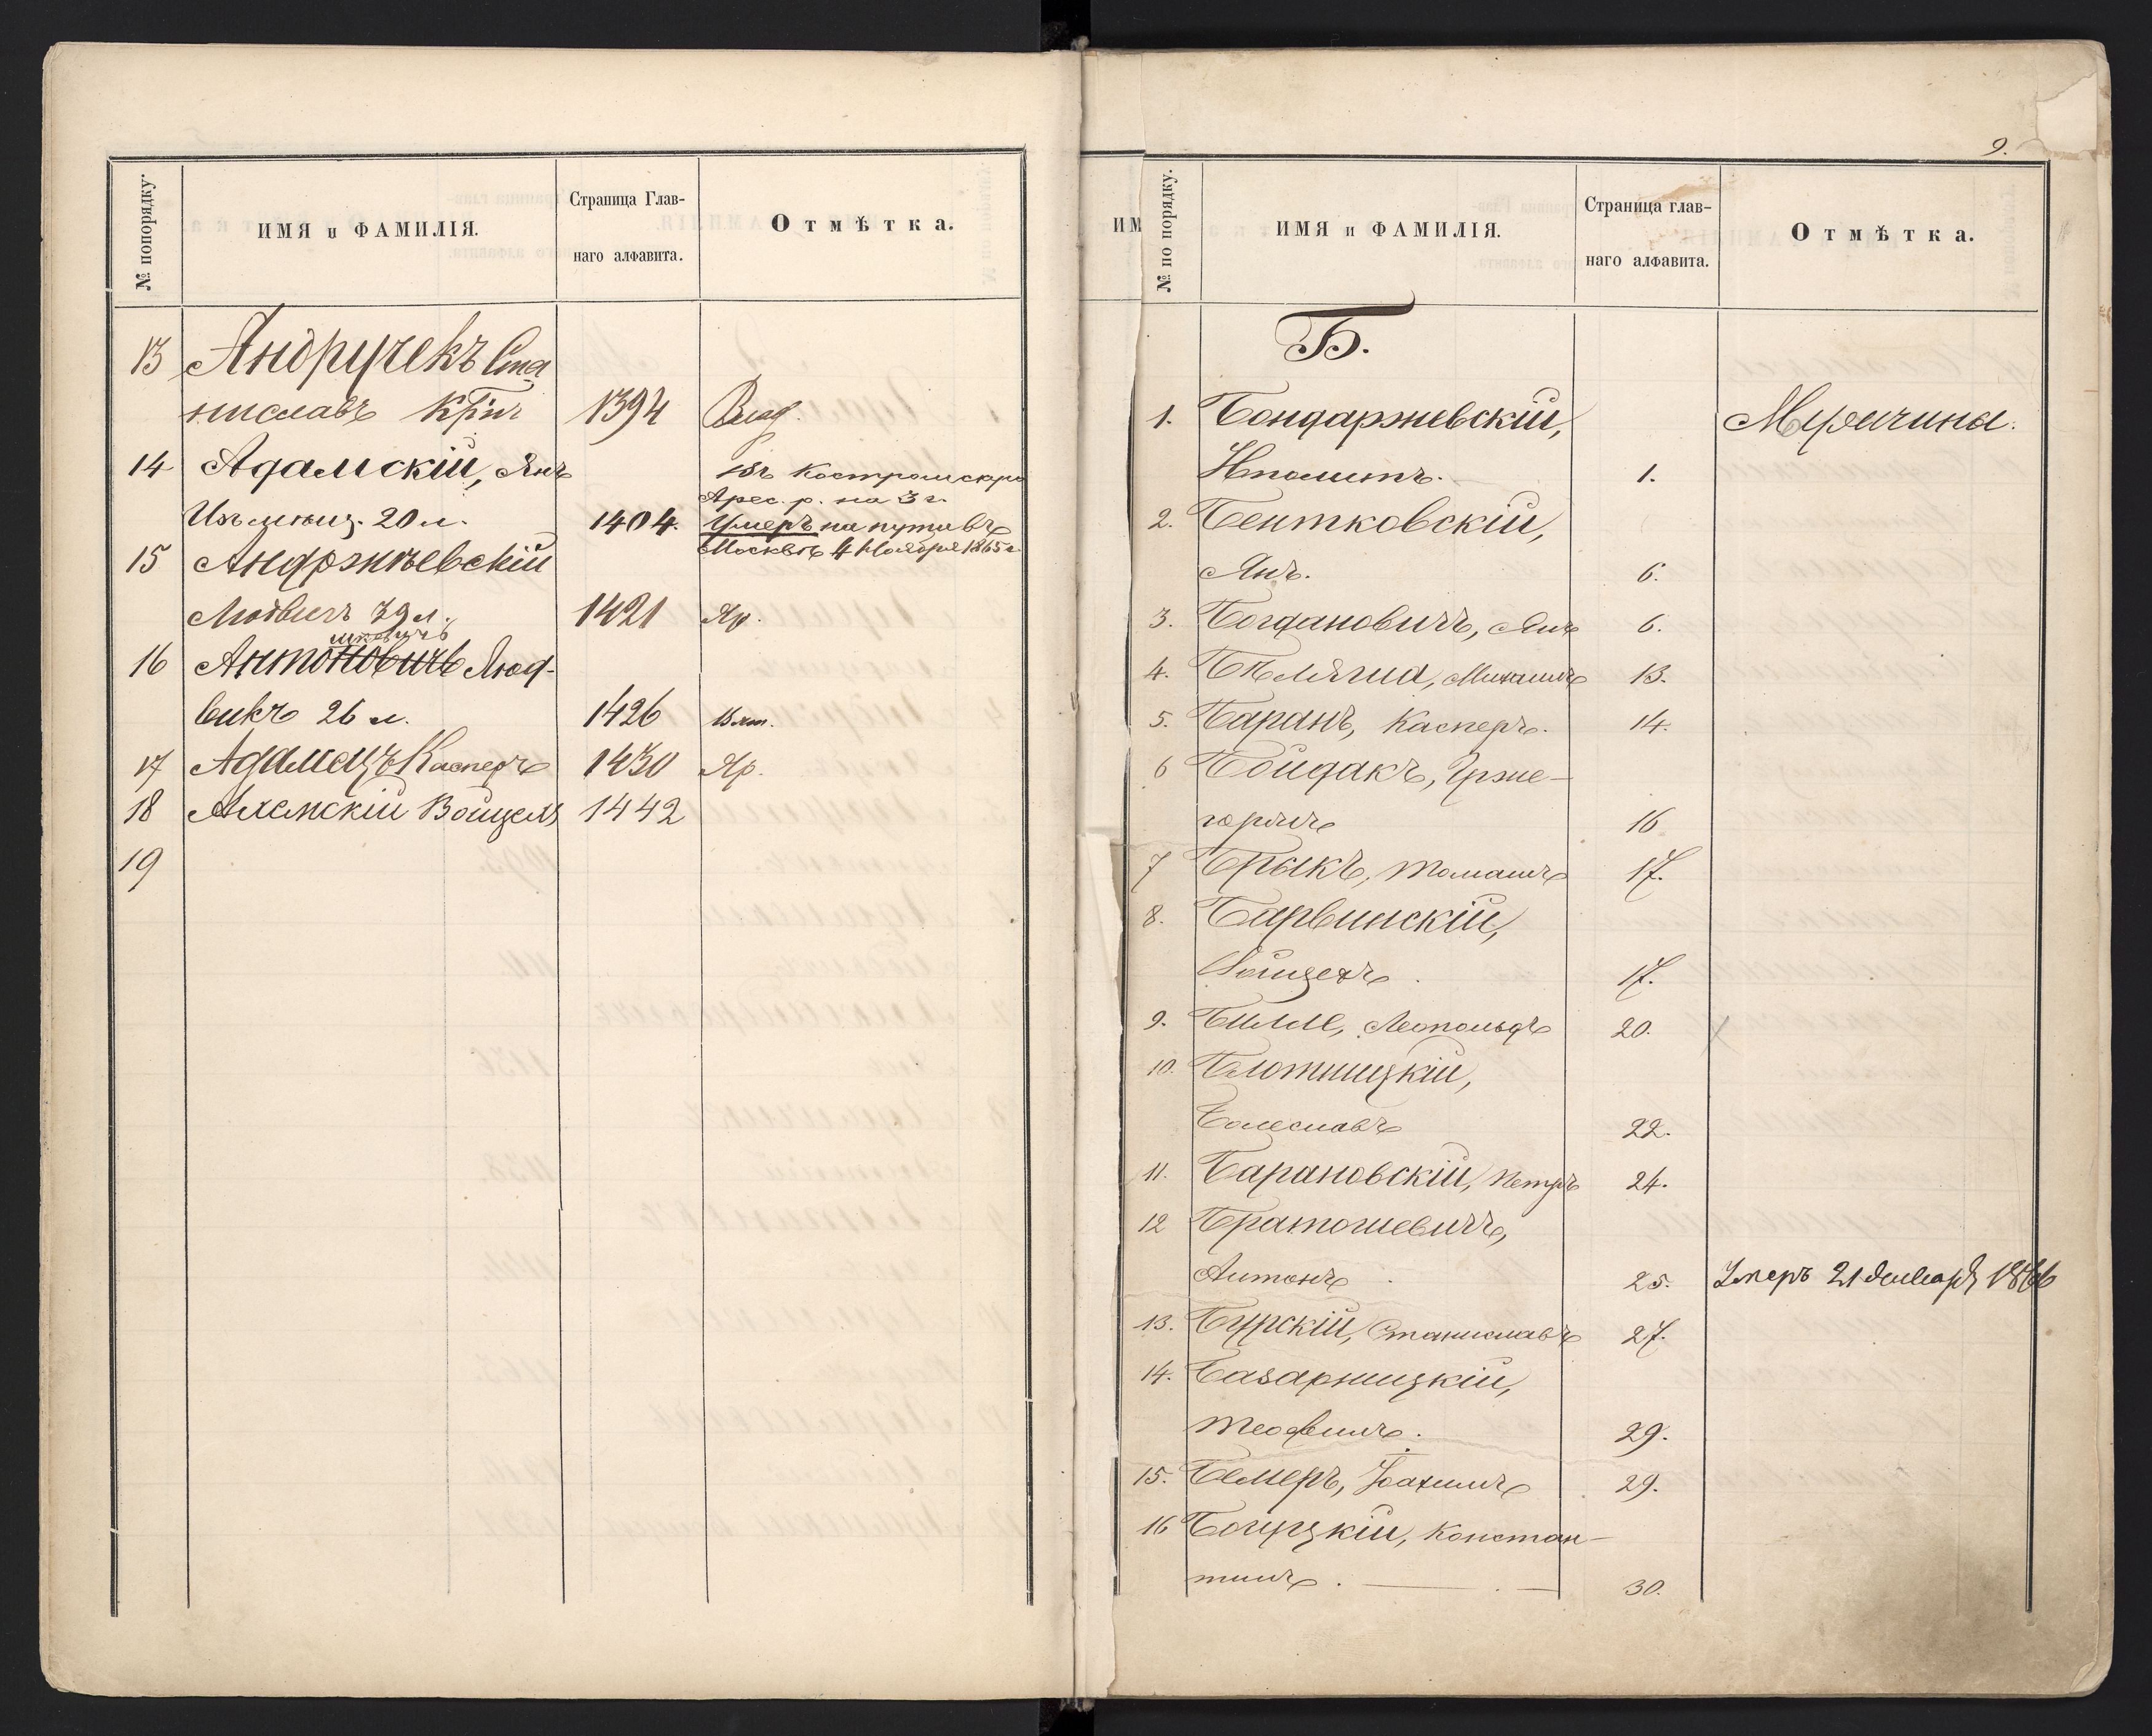 № попорядку.
ИМЯ и ФАМИЛІЯ.
Страница Глав-
наго алфавита.
Отмѣтка.
13 Андручекъ Ста
ниславъ 1394
14 Адамскій, Янъ изъ Костромскаго
Арес. р. на 3 г.
Изъ мѣщ. 20 л. 1404. Умеръ на пути въ
Москвѣ 4 Ноября 1865 г.
15 Андржіевскій
39 л. 1421 Яр.
шкевичъ
16 Антоновичъ Люд-
викъ 26 л. 1426 Вят.
17 Адамецъ Касперъ 1430 Яр.
18 Войцехъ 1442
19
9.
ИМ
№ по порядку.
ИМЯ и ФАМИЛІЯ.
Страница глав-
наго алфавита.
Отмѣтка.
Б.
1. Бондаржевскій,
Иполитъ. 1.
2. Бентковскій,
Янъ. 6.
3. Богдановичъ, Янъ 6.
4. Михаилъ 13.
5. Баранъ, Касперъ. 14.
6 Бойдакъ, Грже-
горжъ 16
7 Брыкъ, Томашъ 17.
8. Барвинскій,
Войцехъ 17.
9. Билле, Леопольдъ 20.
10. Блотницкій,
Болеславъ 22.
11. Барановскій, Петръ 24.
12 Братошевичъ,
Антонъ 25. Умеръ 21 Января 1866
13. Бурскій, Станиславъ 27.
14. Базарницкій,
Теофилъ. 29.
15. Бемеръ, Іоахимъ 29.
16 Констан-
тинъ. 30.